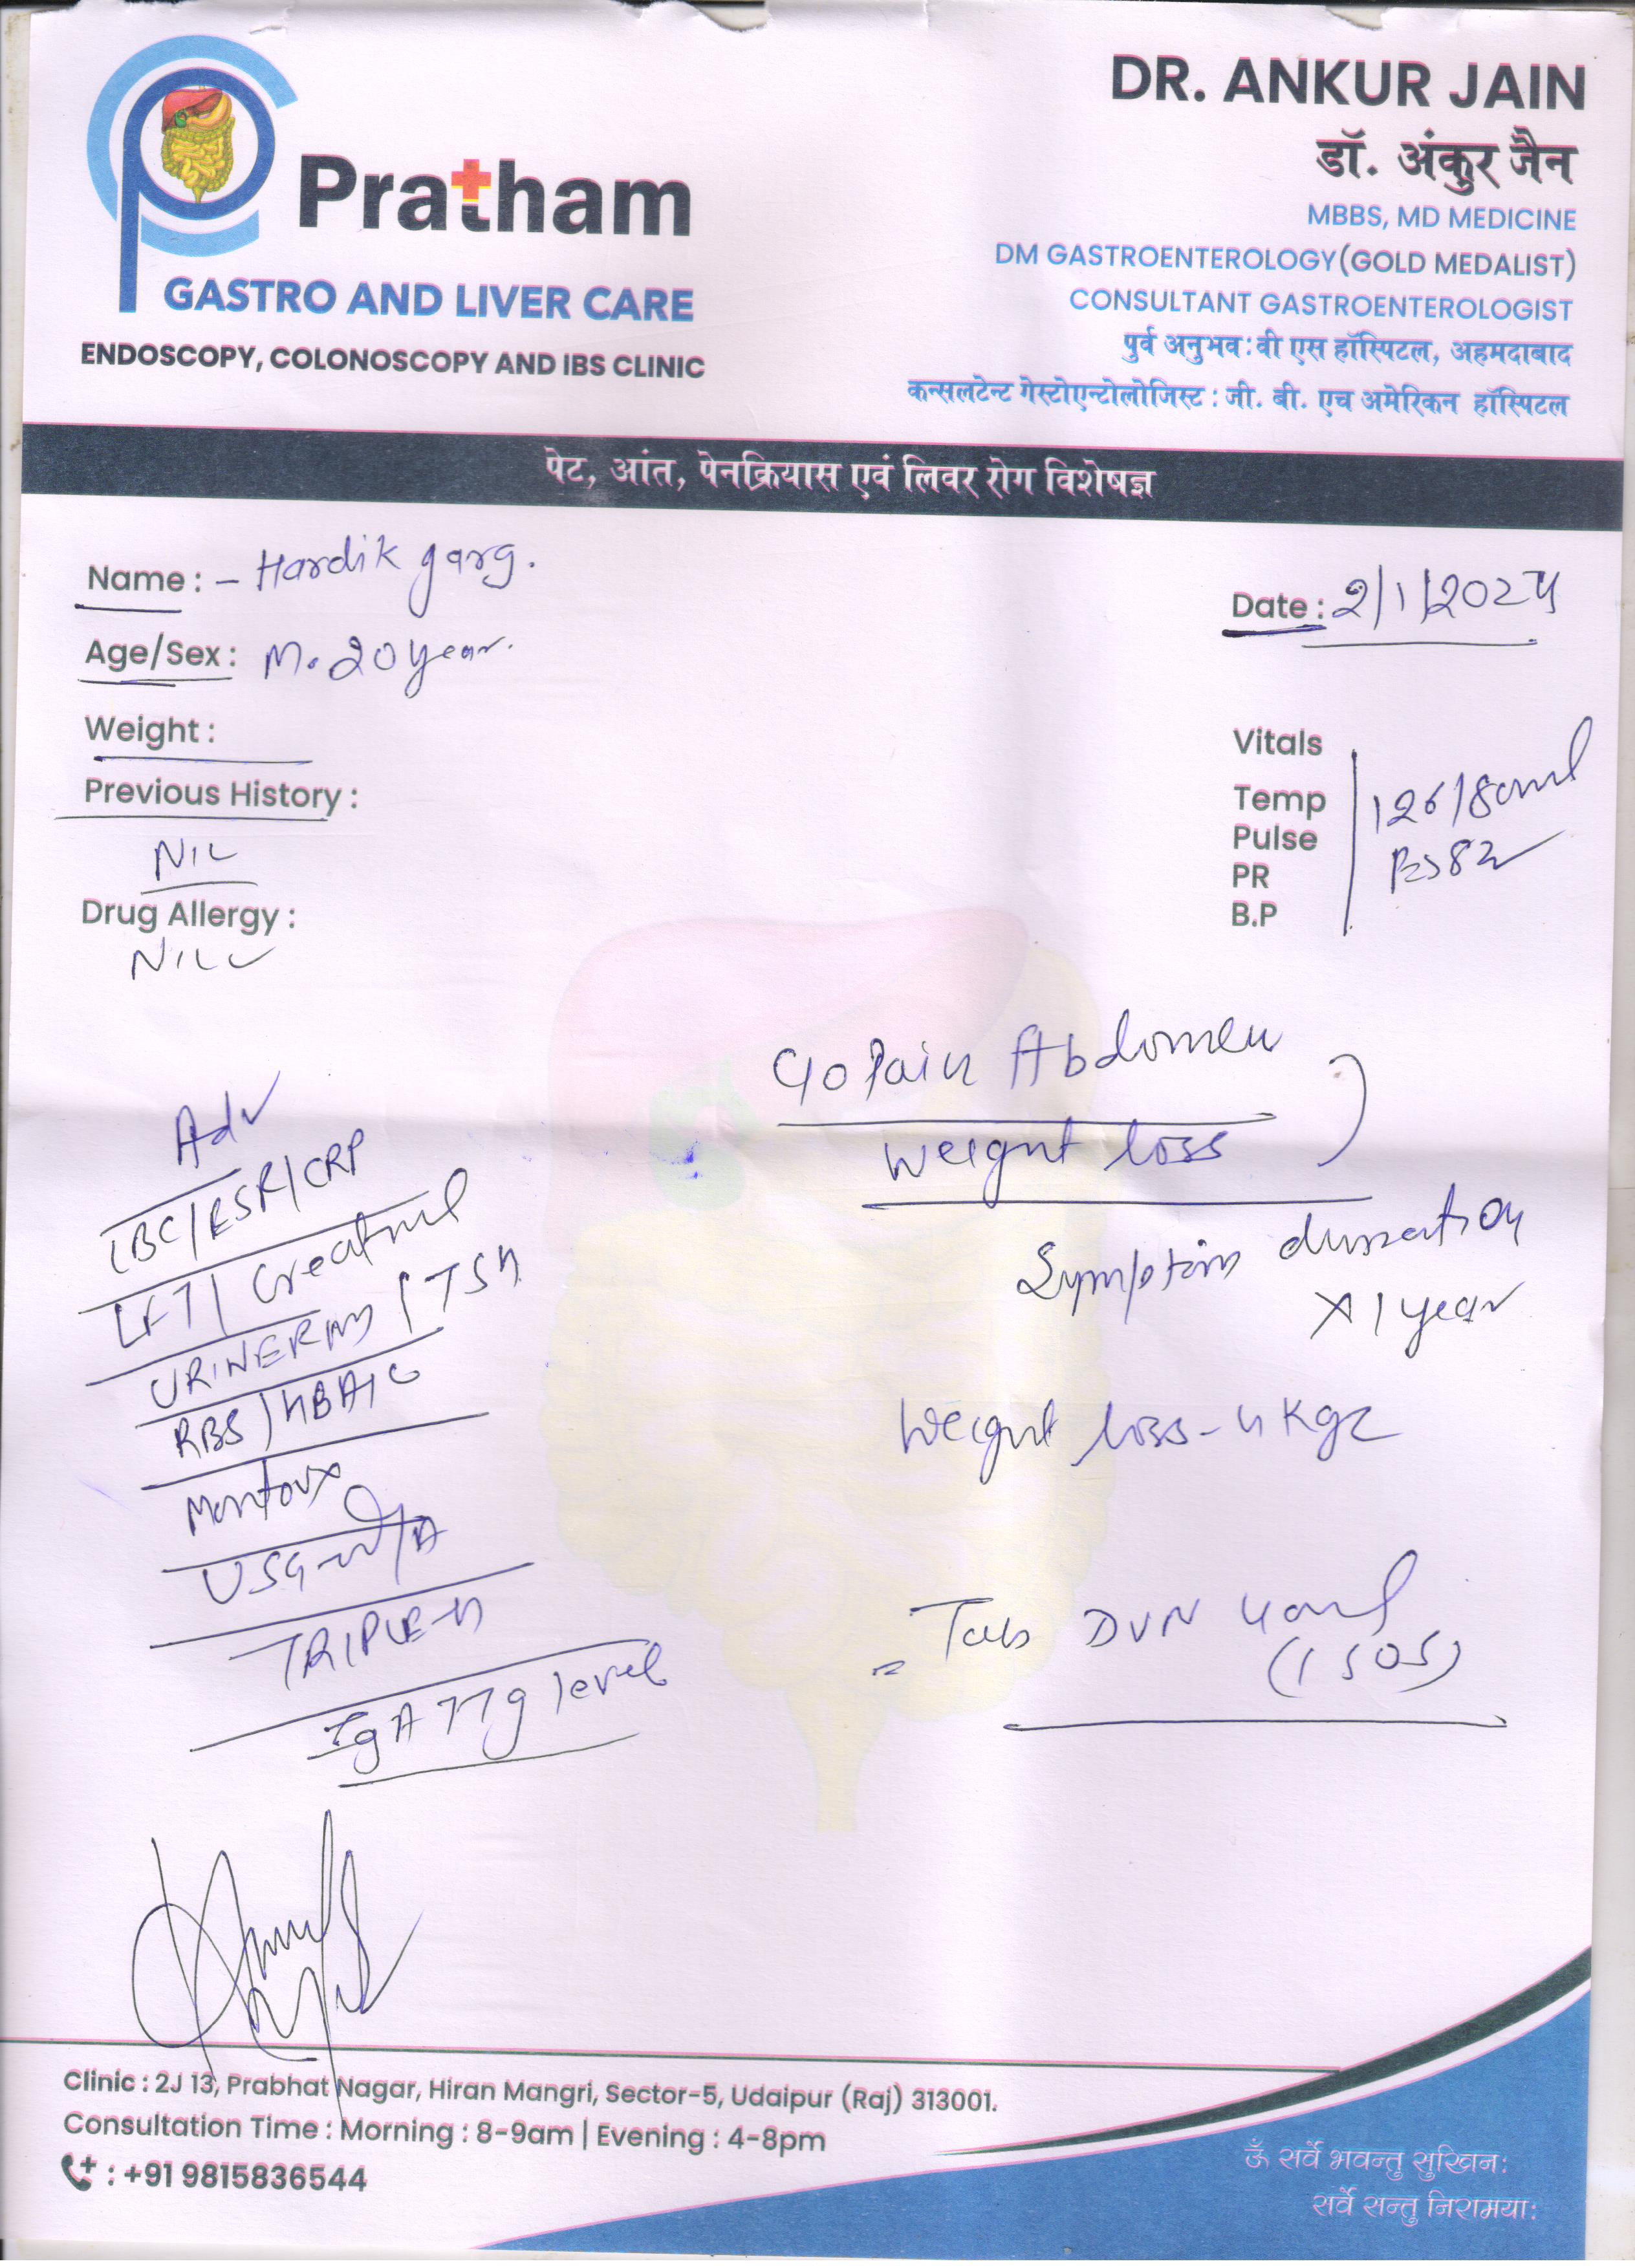 Pratham
GASTRO AND LIVER CARE
ENDOSCOPY, COLONOSCOPY AND IBS CLINIC
DR. ANKUR JAIN
डॉ. अंकुर जैन
MBBS, MD MEDICINE
DM GASTROENTEROLOGY(GOLD MEDALIST)
CONSULTANT GASTROENTEROLOGIST
पुर्व अनुभव:वी एस हॉस्पिटल, अहमदाबाद
कन्सलटेन्ट गेस्टोएन्टोलोजिस्ट : जी. बी. एच अमेरिकन हॉस्पिटल
पेट, आंत, पेनक्रियास एवं लिवर रोग विशेषज्ञ
Name : - Hardik garg.
Date : 2/1/2024
Age/Sex : M. 20 year.
Weight :
Previous History :
NIL
Drug Allergy :
NIL
Vitals
Temp 126/80
Pulse
PR 82
B.P
C/o Pain Abdomen
Weight loss
Symptom duration
x 1 year
Weight loss - 4 Kgs
Adv
CBC/ESR/CRP
LFT/Creatinine
URINE R/M / TSH
RBS/HBA1C
Mantoux
USG-W/A
TRIPLE-H
IgA TTg level
Tab DVN
(1 SOS)
Clinic : 2J 13, Prabhat Nagar, Hiran Mangri, Sector-5, Udaipur (Raj) 313001.
Consultation Time : Morning : 8-9am | Evening : 4-8pm
: +91 9815836544
ॐ सर्वे भवन्तु सुखिनः
सर्वे सन्तु निरामयाः